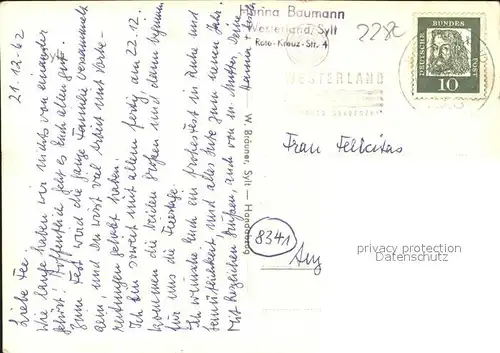 21.12.62
Liebe Fee,
Wie lange haben wir nichts von einander
gehört! Hoffentlich geht es Euch allen gut.
Zum Fest wird die ganze Familie versammelt
sein, und Du wirst viel Arbeit mit Vorbe-
reitungen gehabt haben.
Ich bin soweit mit allem fertig, am 22.12.
kommen die beiden Großen und dann beginnen
für uns die Feiertage.
Ich wünsche Euch ein frohes Fest in Ruhe und
Gemütlichkeit und alles Gute zum neuen Jahr.
Mit herzlichen Grüßen, auch von m. Mutter, Deine
Hanna
W. Bräuner, Sylt — Handabzug
Hanna Baumann
Westerland, Sylt
Rote-Kreuz-Str. 4
228c
WESTERLAND
DEUTSCHE BUNDESPOST
10
Frau Felicitas
8341
privacy protection
Datenschutz